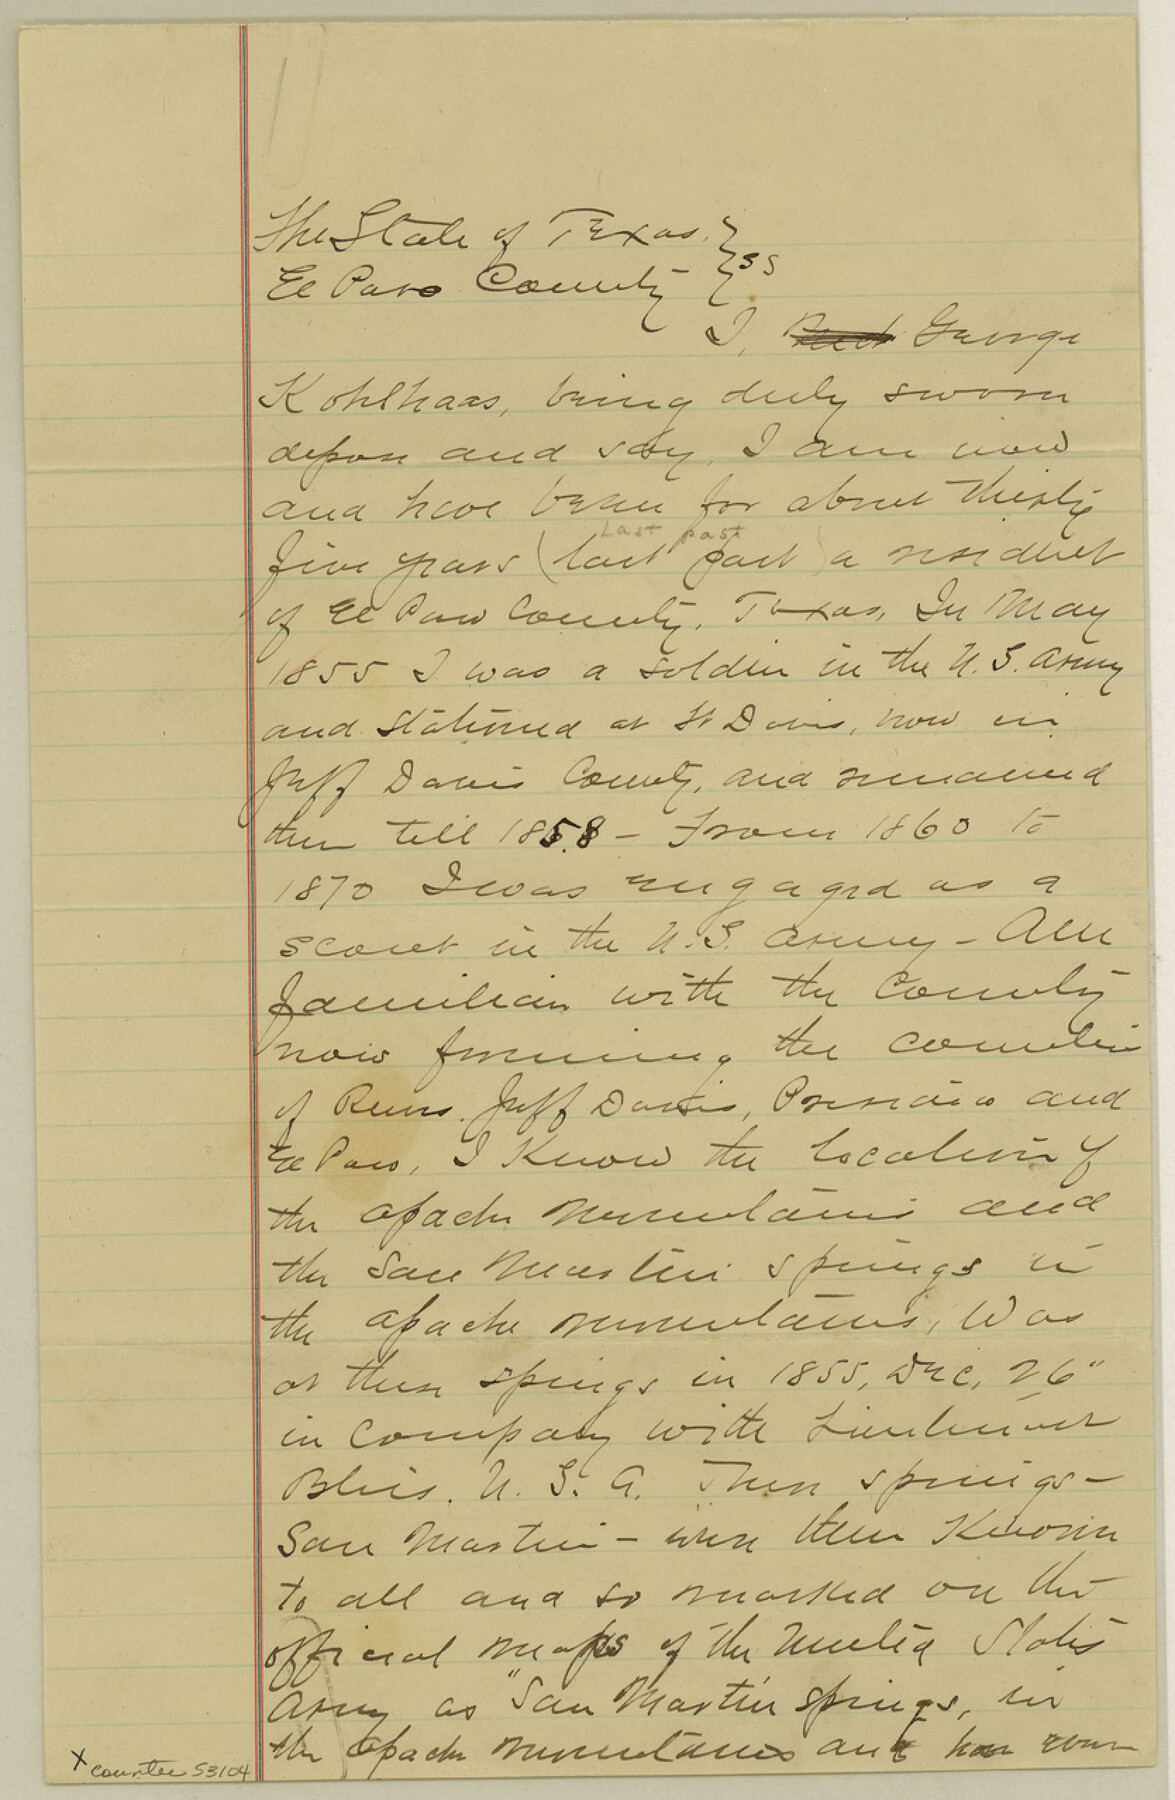 The State of Texas, } ss
El Paso County }
I, George
Kohlhaas, being duly sworn
depose and say, I am now
and have been for about thirty
Last past
five years (last past) a resident
of El Paso County, Texas, In May
1855 I was a soldier in the U.S. Army
and stationed at Ft Davis, now in
Jeff Davis County, and remained
there till 1858 - From 1860 to
1870 I was engaged as a
scout in the U.S. Army - Am
familiar with the County
now forming the counties
of Reeves, Jeff Davis, Presidio and
El Paso, I Know the location of
the apache mountains and
the San Martin springs in
the apache mountains, Was
at these springs in 1855, Dec, 26"
in company with Lieutenant
Bliss. U. S. A. These springs -
San Martin - were then Known
to all and so marked on the
official maps of the United States
Army as "San Martin springs, in
the Apache mountains and has ever
x counter 53104